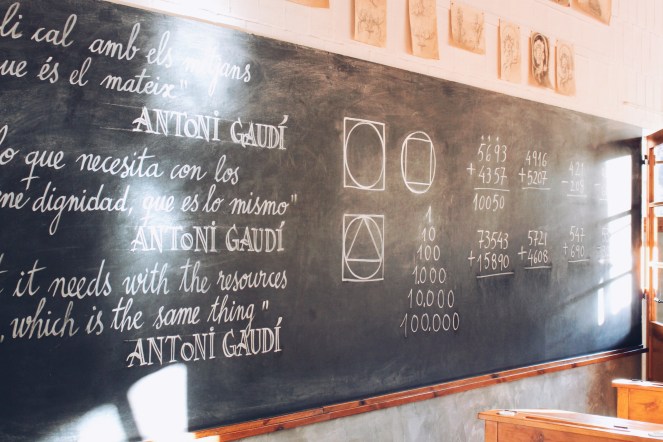 li cal amb els
ue és el mateix"
ANTONI GAUDÍ
lo que necesita con los
ne dignidad, que es lo mismo"
ANTONI GAUDÍ
t it needs with the resources
, which is the same thing"
ANTONI GAUDÍ
1
10
100
1,000
10,000
100,000
5693
+4357
10050
4916
+5207
421
73543
+15890
5721
+4608
547
+690